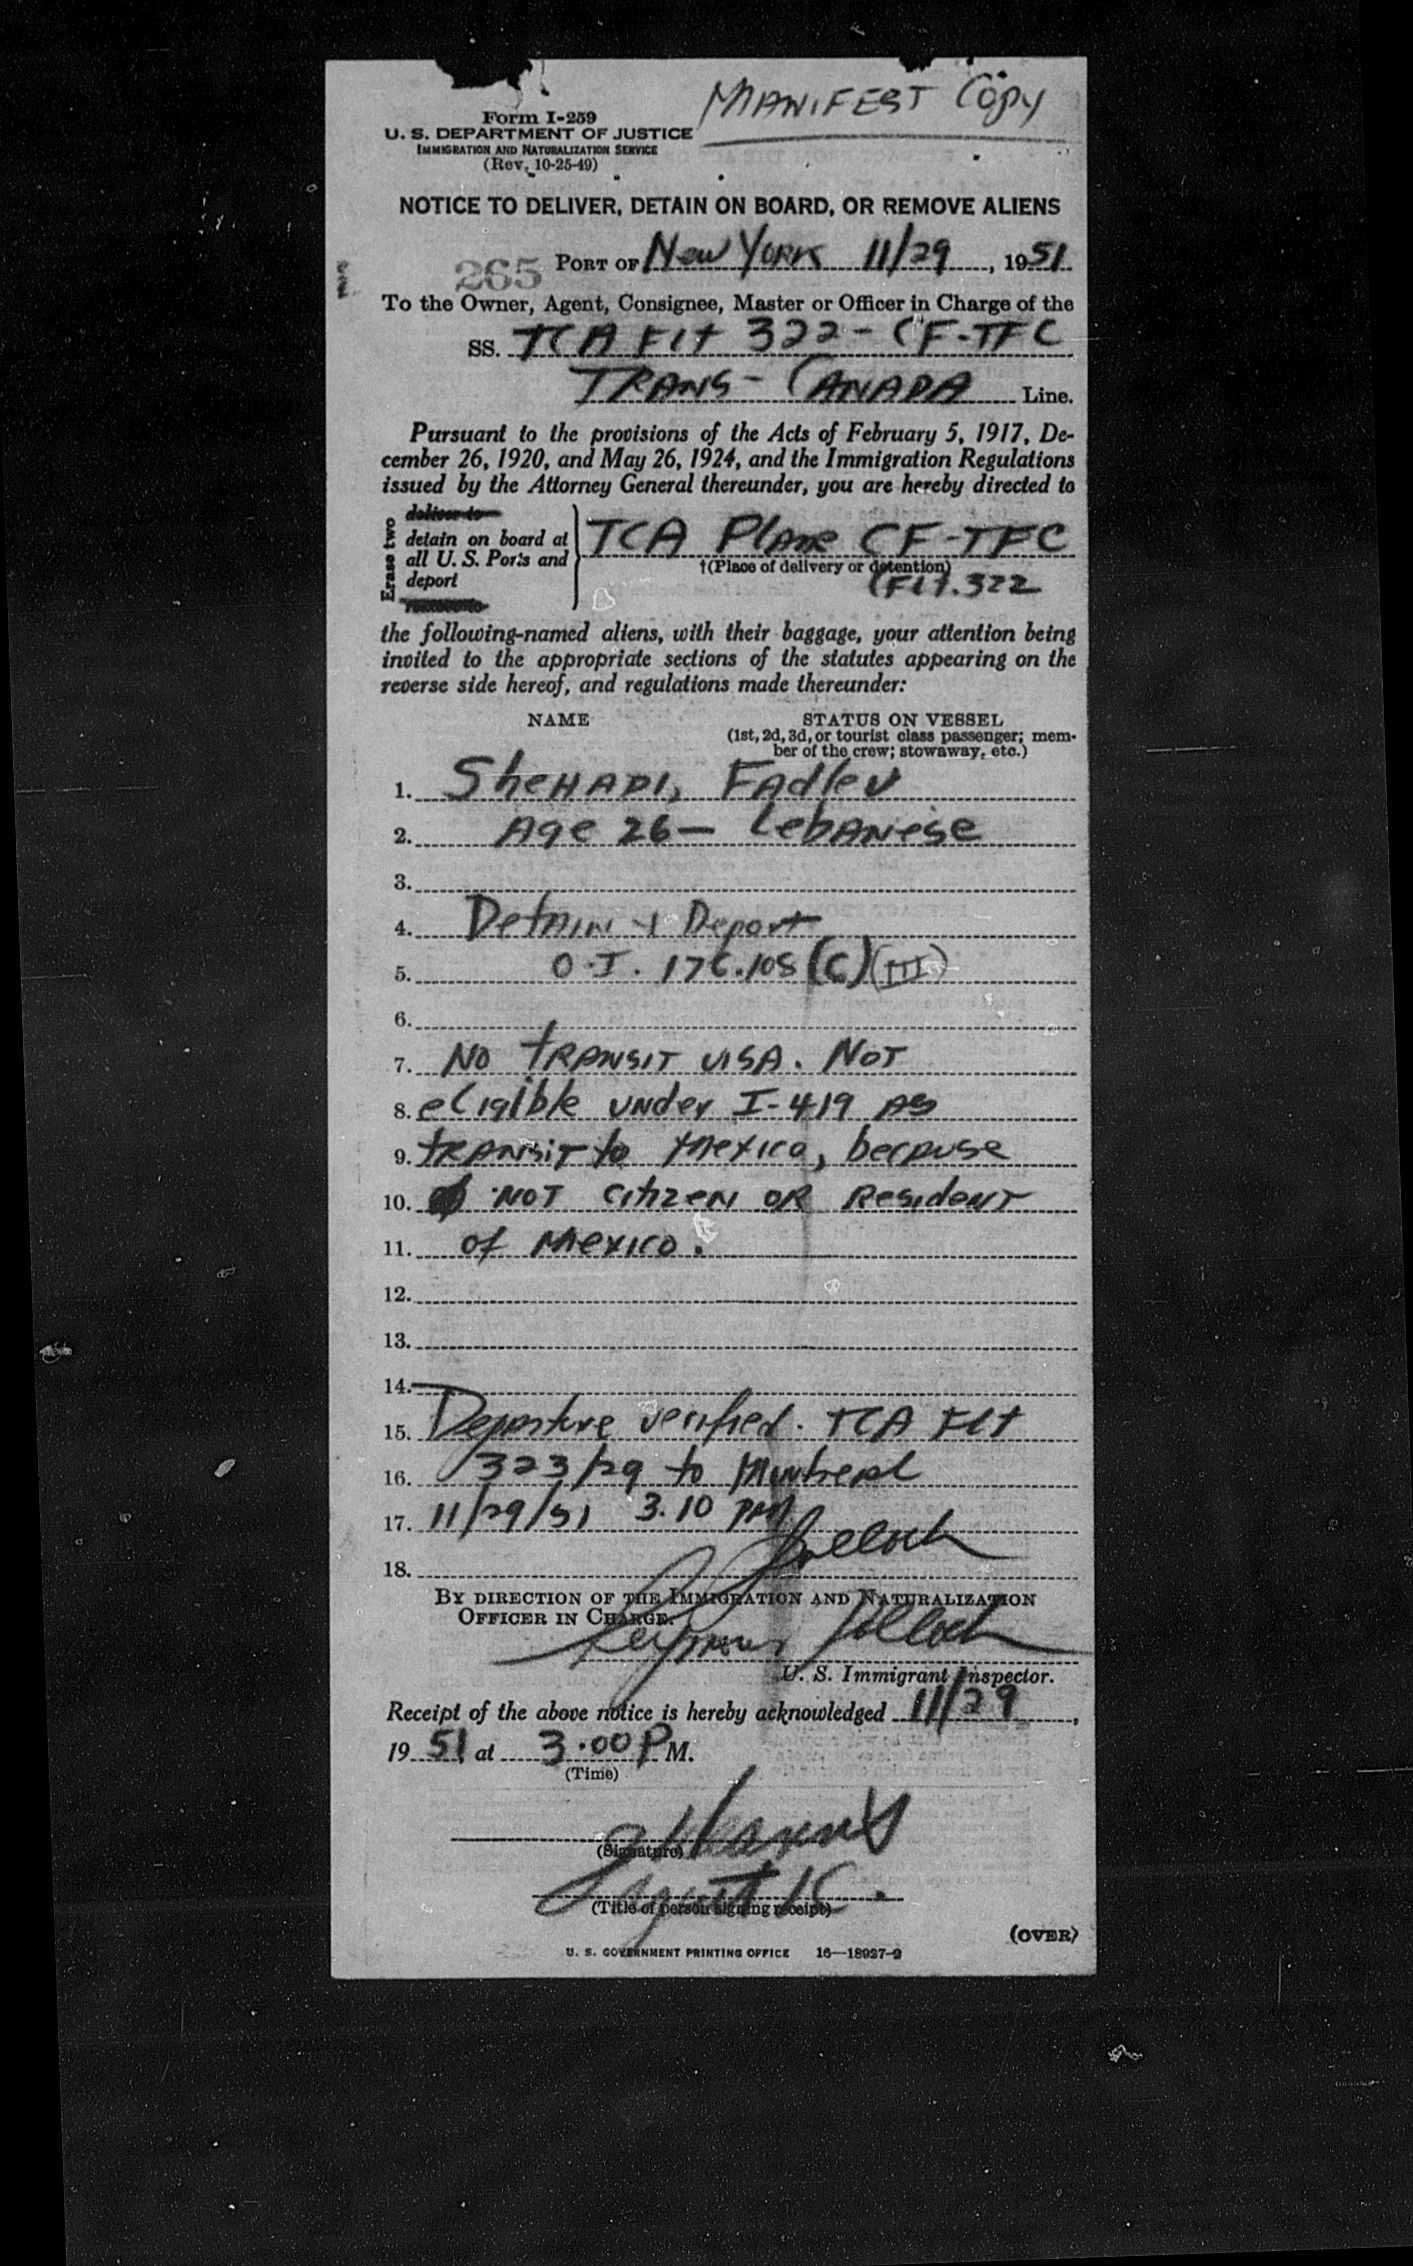 MANIFEST Copy
Form I-259
U. S. DEPARTMENT OF JUSTICE
IMMIGRATION AND NATURALIZATION SERVICE
(Rev. 10-25-49)
NOTICE TO DELIVER, DETAIN ON BOARD, OR REMOVE ALIENS
265 PORT OF New YORK 11/29, 1951
To the Owner, Agent, Consignee, Master or Officer in Charge of the
SS. TCA Flt 322 - CF-TFC
TRANS-CANADA Line.
Pursuant to the provisions of the Acts of February 5, 1917, De-
cember 26, 1920, and May 26, 1924, and the Immigration Regulations
issued by the Attorney General thereunder, you are hereby directed to
Erase two
deliver to
detain on board at
all U. S. Ports and
deport
TCA Plane CF-TFC
†(Place of delivery or detention)
(Flt. 322
the following-named aliens, with their baggage, your attention being
invited to the appropriate sections of the statutes appearing on the
reverse side hereof, and regulations made thereunder:
NAME STATUS ON VESSEL
(1st, 2d, 3d, or tourist class passenger; mem-
ber of the crew; stowaway, etc.)
1. SheHADI, Fadlev
2. Age 26 - LebANese
3.
4. DetAIN + Deport
5. O.I. 176.105 (C)(III)
6.
7. NO TRANSIT VISA. NOT
8. eligible under I-419 AS
9. TRANSIT to Mexico, because
10. NOT citizen OR Resident
11. of Mexico.
12.
13.
14.
15. Departure verified. TCA Flt
16. 323/29 to Montreal
17. 11/29/51 3.10 PM
Pollock
18.
BY DIRECTION OF THE IMMIGRATION AND NATURALIZATION
OFFICER IN CHARGE.
Seymour Pollock
U. S. Immigrant Inspector.
Receipt of the above notice is hereby acknowledged 11/29,
1951 at 3.00 P M.
(Time)
(Signature)
(Title of person signing receipt)
(OVER)
U. S. GOVERNMENT PRINTING OFFICE 16—18927-2